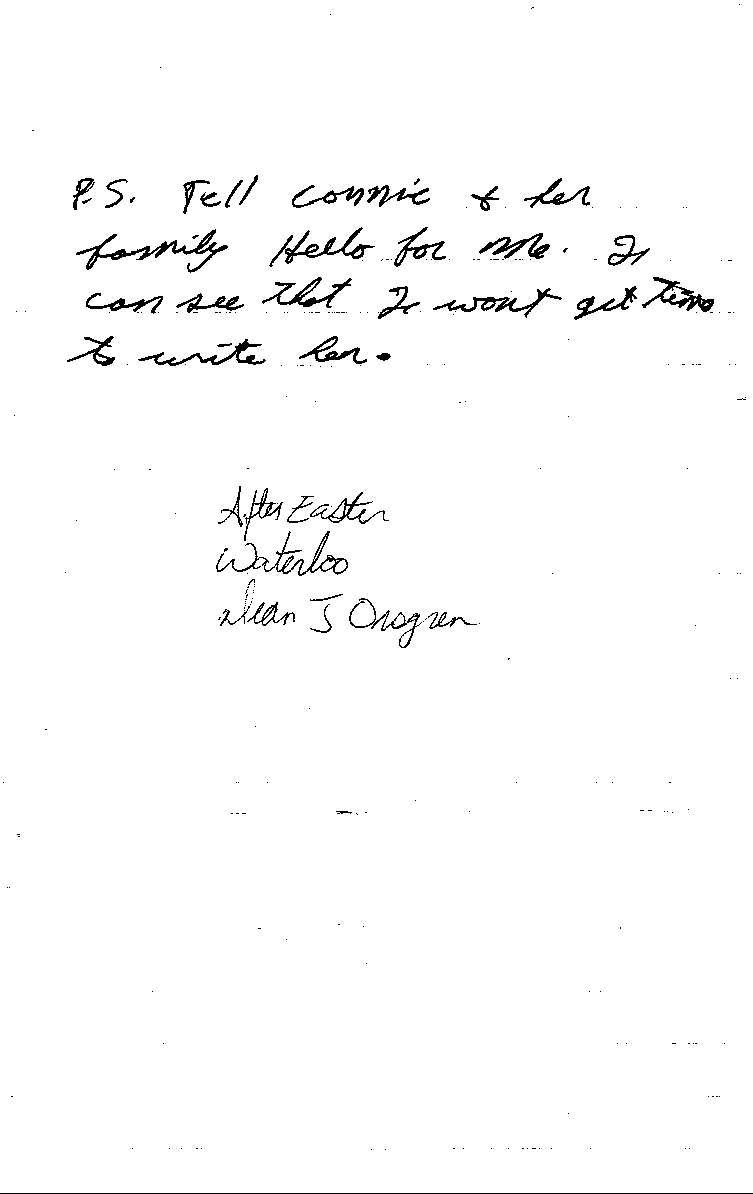 P.S. Tell Connie & her
family Hello for Me. I
can see that I wont get time
to write her.
After Easter
Waterloo
Dean J